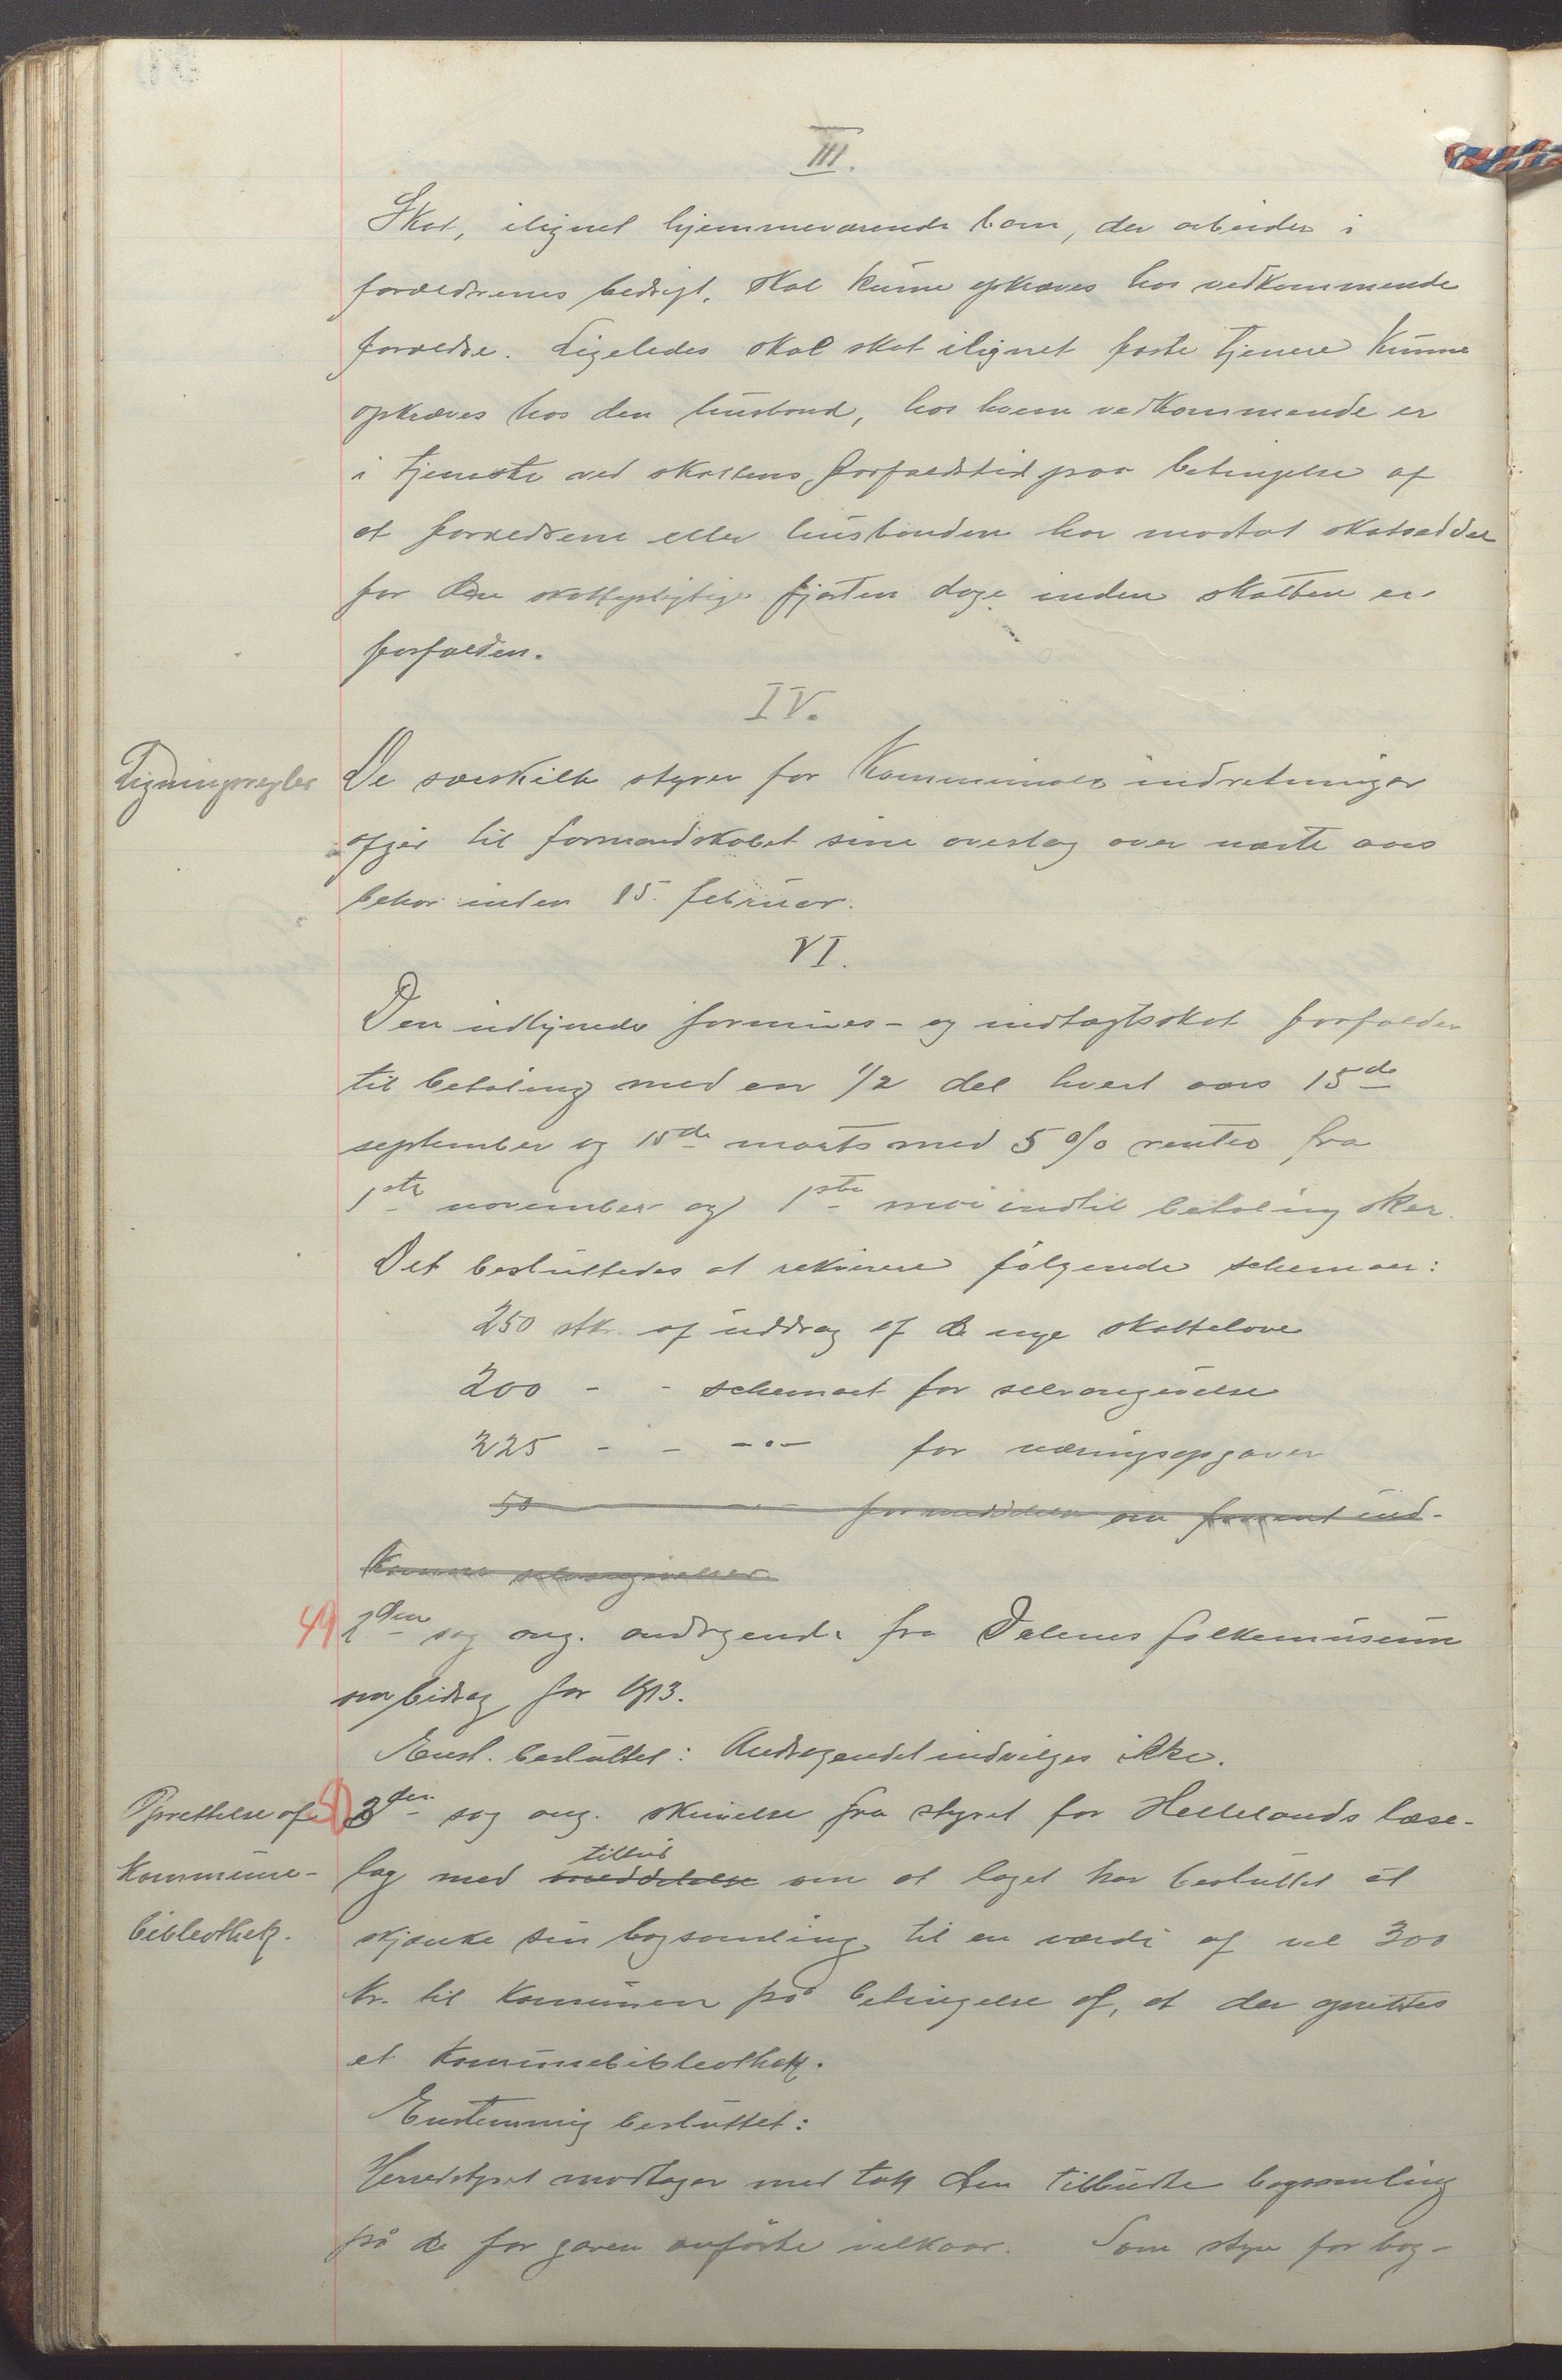 III.
Skat, ilignet hjemmeværende barn, der arbeider i
forældrenes bedrift, skal kunne opkræves hos vedkommende
forældre. Ligeledes skal skat ilignet faste tjenere kunne
opkræves hos den husbond, hos hvem vedkommende er
i tjeneste ved skattens forfaldstid paa betingelse af
at forældrene eller husbonden har mottat skatseddel
for den skattepligtige fjorten dage inden skatten er
forfalden.
IV.
Ligningsregler
De særskilte styrer for kommunale indretninger
afgir til formandskabet sine overslag over næste aars
behov inden 15. februar.
VI.
Den udlignede formues- og indtægtsskat forfalder
til betaling med en 1/2 del hvert aars 15de
september og 15de marts med 5 % renter fra
1ste november og 1ste mai indtil betaling sker.
Det besluttedes at rekvirere følgende schemaer:
250 stk. af uddrag af de nye skattelove
200 - - schemaet for selvangivelse
225 - - -"- for næringsopgaver
50 for meddelelse om forment ind-
komne selvangivelser.
49 2den sag ang. andragende fra Dalenes folkemuseum
om bidrag for 1913.
Enst. besluttet: Andragendet indvilges ikke.
Oprettelse af
kommune-
bibliothek.
50 3die sag ang. skrivelse fra styret for Hellelands læse-
tilbud
lag med meddelelse om at laget har besluttet at
skjænke sin bogsamling til en værdi af vel 300
kr. til kommunen på betingelse af, at der oprettes
et kommunebibliothek.
Enstemmig besluttet:
Herredstyret modtager med tak den tilbudte bogsamling
på de for gaven anførte vilkaar. Som styre for bog-